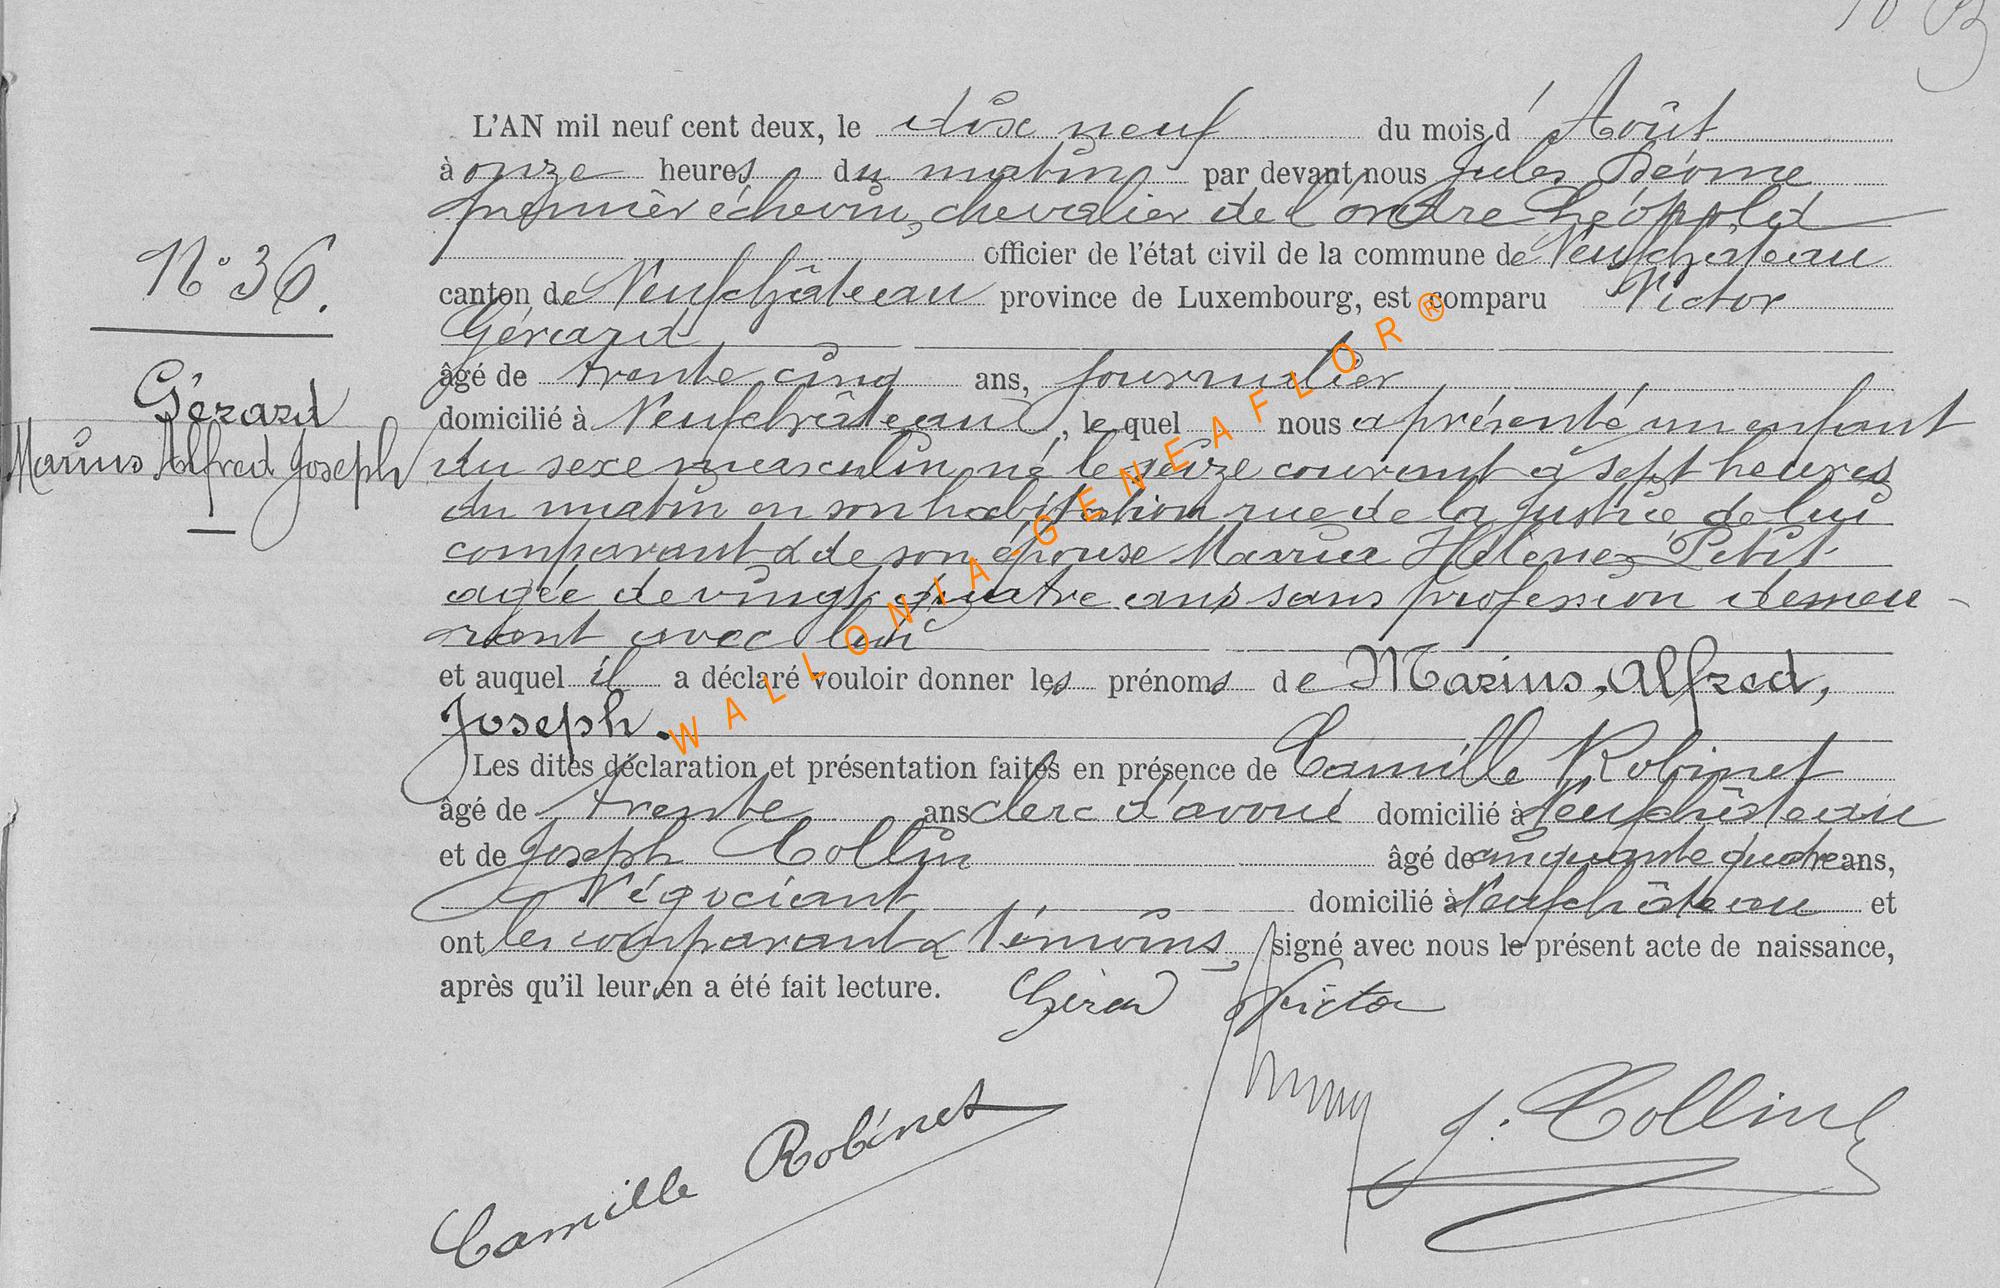 L'AN mil neuf cent deux, le dix neuf du mois d'Août
à onze heures du matin par devant nous Jules
premier échevin, chevalier de l'ordre Léopold
officier de l'état civil de la commune de Neufchâteau
canton de Neufchâteau province de Luxembourg, est comparu Victor
Gérard
âgé de trente cinq ans, journalier
domicilié à Neufchâteau, le quel nous a présenté un enfant
du sexe masculin, né le seize courant à sept heures
du matin en son habitation rue de la Justice de lui
comparant & de son épouse Marie Hélène Petit
agée de vingt quatre ans sans profession demeu-
rant avec lui
et auquel il a déclaré vouloir donner les prénoms de Marius, Alfred,
Joseph.
Les dites déclaration et présentation faites en présence de Camille Robinet
âgé de trente ans clerc d'avoué domicilié à Neufchâteau
et de Joseph Collin âgé de cinquante quatre ans,
Négociant domicilié à Neufchâteau et
ont les comparant & témoins, signé avec nous le présent acte de naissance,
après qu'il leur en a été fait lecture.
N° 36.
Gérard
Marius Alfred Joseph
Victor
Camille Robinet
J. Collin
WALLONIA-GENEAFLOR®